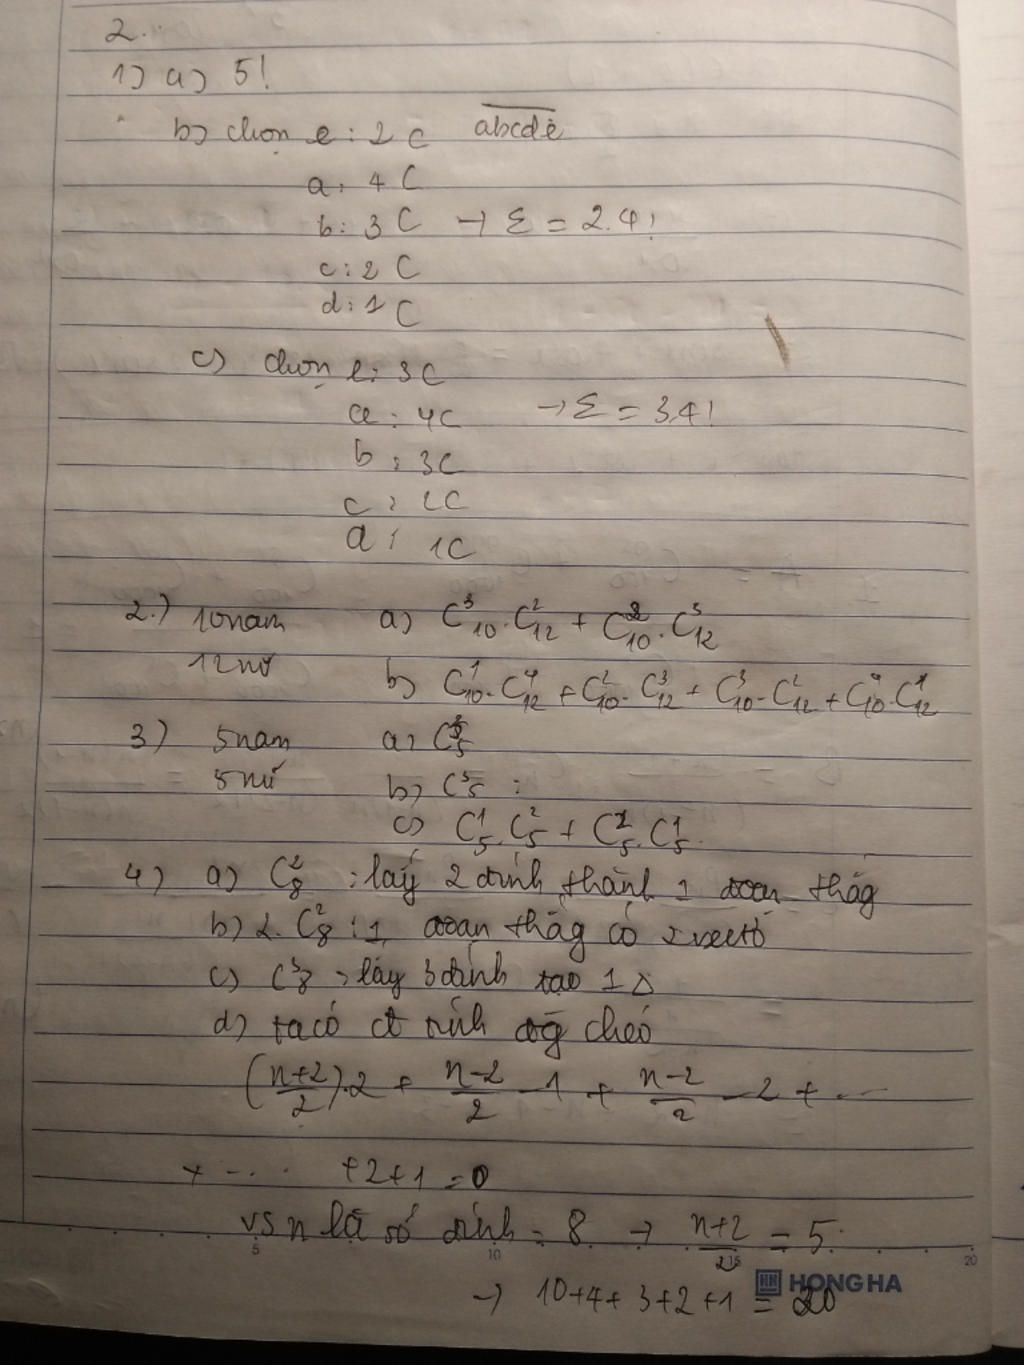 2.
1) a) 5!
b) chọn e : 2 C abcde
a : 4 C
b : 3 C → Σ = 2.4!
c : 2 C
d : 1 C
c) chọn e : 3C
a : 4C → Σ = 3.4!
b : 3C
c : 2C
d : 1C
2.) 10 nam a) C³₁₀.C²₁₂ + C²₁₀.C³₁₂
12 nữ b) C¹₁₀.C⁴₁₂ + C²₁₀.C³₁₂ + C³₁₀.C²₁₂ + C⁴₁₀.C¹₁₂
3) 5 nam a) C³₅
5 nữ b) C³₅ :
c) C¹₅.C²₅ + C²₅.C¹₅.
4) a) C²₈ : lấy 2 đỉnh thành 1 đoạn thẳg
b) 2.C²₈ : 1 đoạn thẳg có 2 vectơ
c) C³₈ : lấy 3 đỉnh tạo 1 Δ
d) ta có ct tính đg chéo
(n+2/2).2 + n-2/2 - 1 + n-2/2 - 2 + ...
+ ... +2+1 = 0
vs n là số đỉnh = 8 → n+2/2 = 5
5 10 15 20
→ 10+4+3+2+1 = 20
HH HONG HA